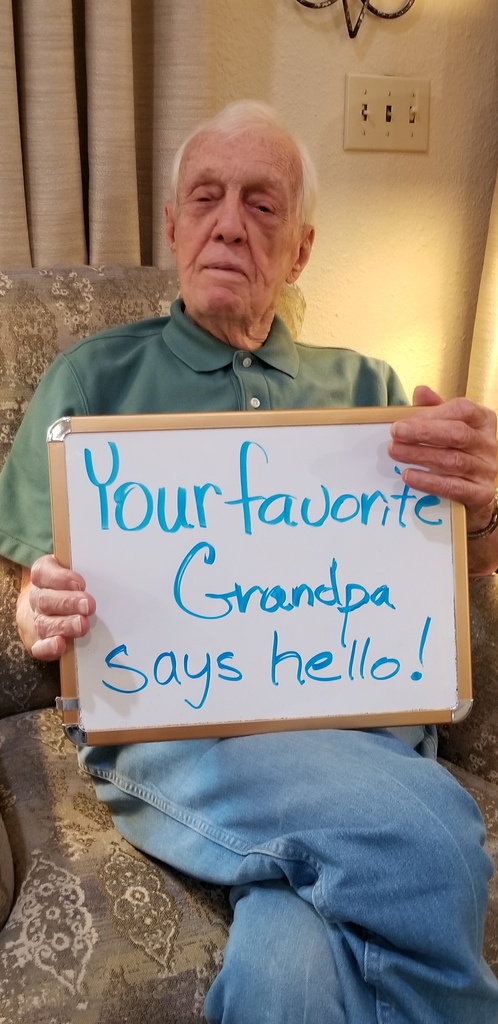 Your favorite
Grandpa
says hello!